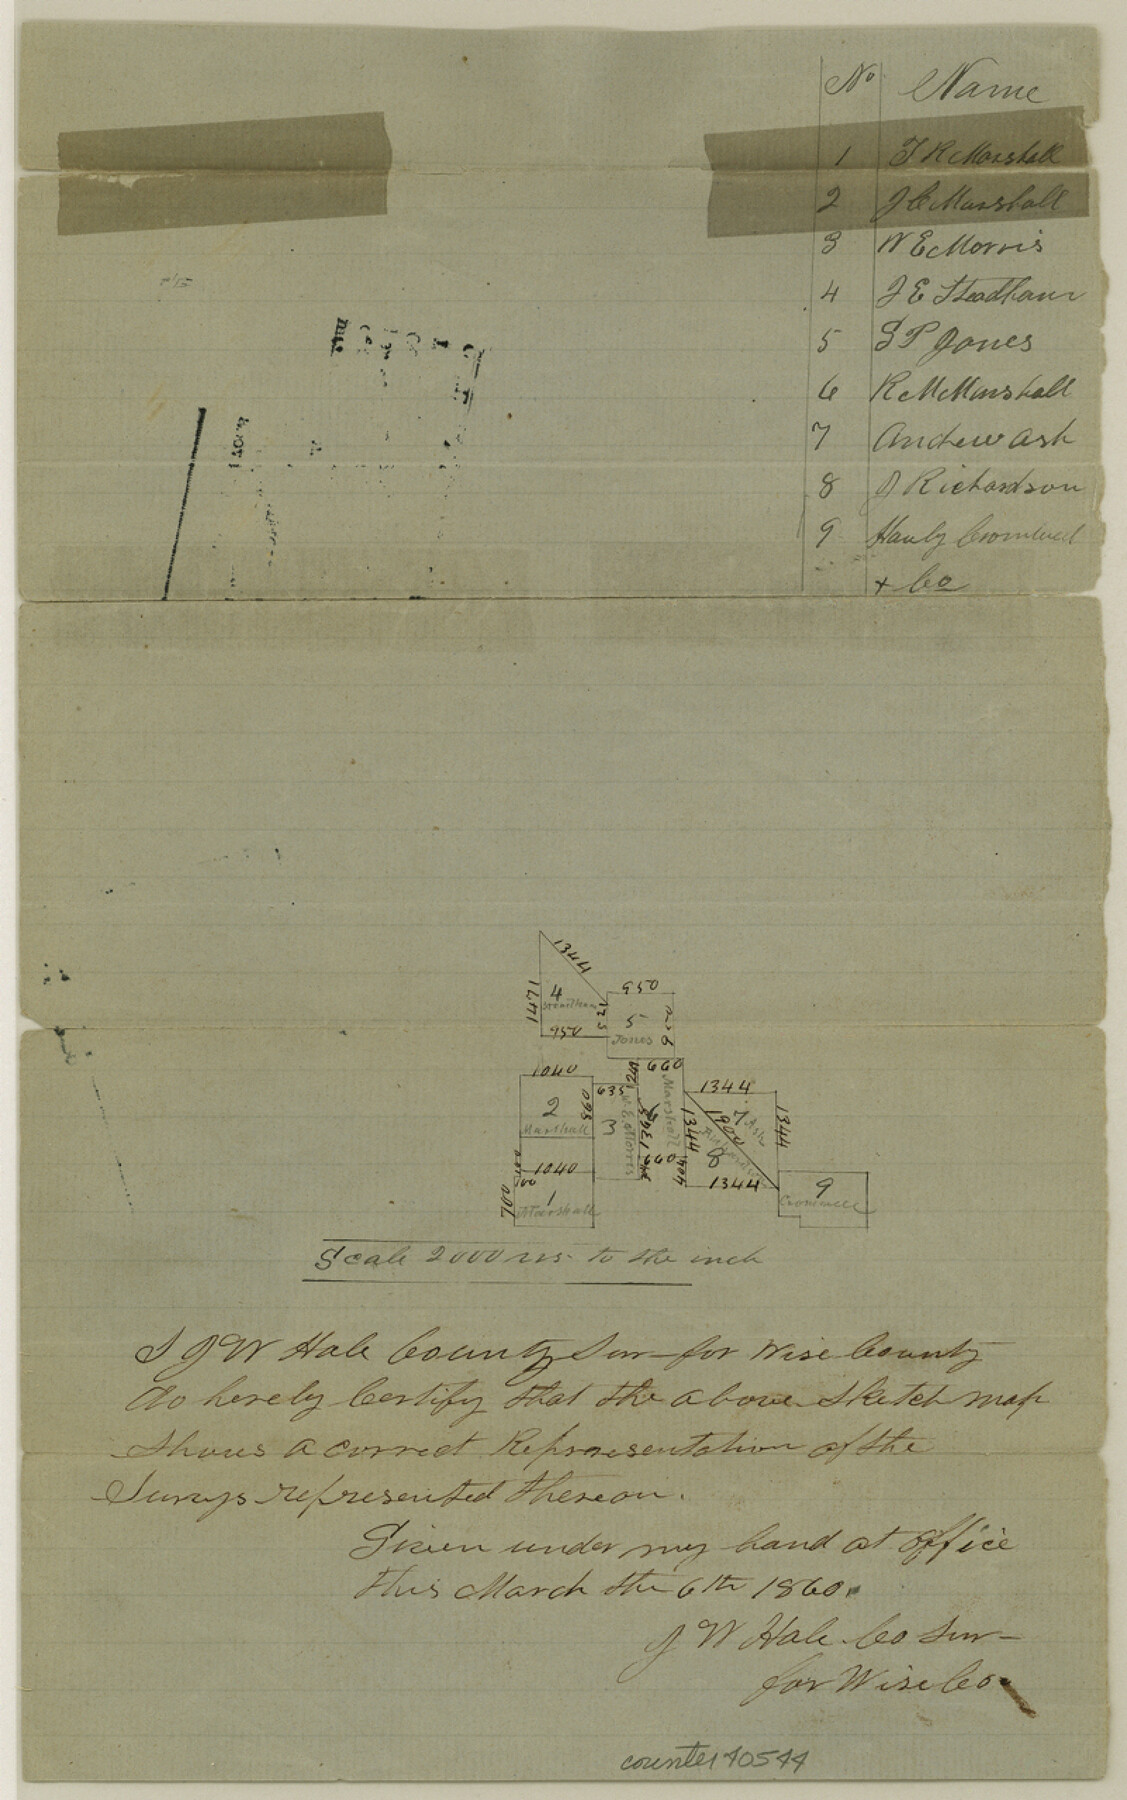 No Name
1 T R Marshall
2 J C Marshall
3 W E Morris
4 J E Steadham
5 S P Jones
6 R M Marshall
7 Andrew Ash
8 J Richardson
9 Cromwell
+ Co
1344
4
1471
Steadham
950
125
950
5
Jones
1040
2
Marshall
860
635
3
W. E. Morris
660
Marshall
660
1344
7 Ash
1344
1344
1900
Richardson
8
1344
404
1040
700
1
Marshall
9
Cromwell
Scale 2000 vrs to the inch
I J W Hale County Sur for Wise County
do hereby Certify that the above Sketch map
Shows a correct Representation of the
Surveys represented thereon.
Given under my hand at office
this March the 6th 1860.
J W Hale Co Sur
for Wise Co.
counter 40544